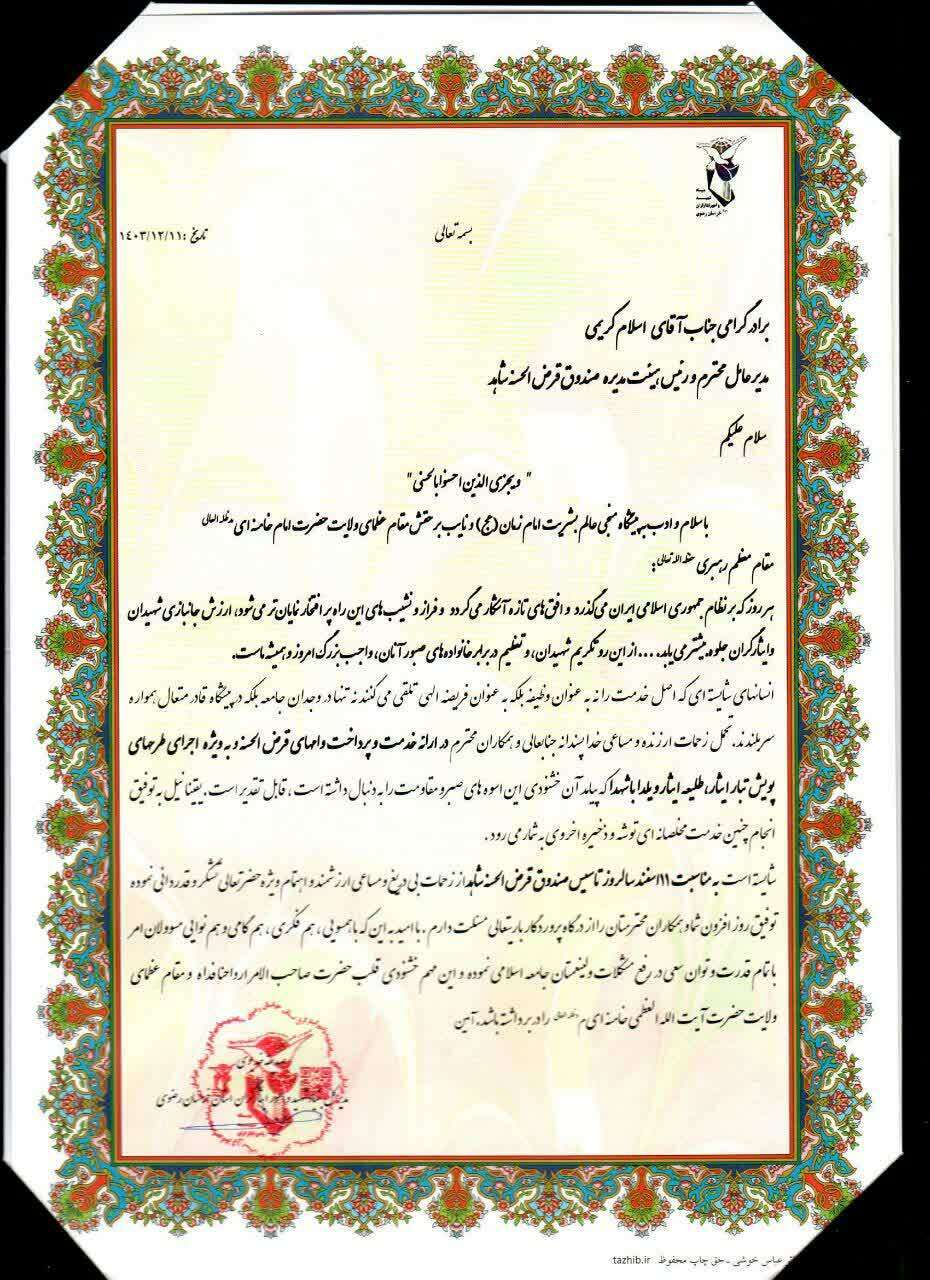 بنیاد
شهید
و امور ایثارگران
خراسان رضوی
بسمه تعالی
تاریخ :۱۴۰۳/۱۲/۱۱
برادر گرامی جناب آقای اسلام کریمی
مدیر عامل محترم و رئیس هیئت مدیره صندوق قرض الحسنه شاهد
سلام علیکم
" ویجزی الذین احسنوا بالحسنی "
با سلام و ادب به پیشگاه منجی عالم بشریت امام زمان (عج) و نایب برحقش مقام عظمای ولایت حضرت امام خامنه ای مدظله العالی
مقام معظم رهبری حفظه الله تعالی :
هر روز که بر نظام جمهوری اسلامی ایران می‌گذرد و افق‌های تازه آشکار می‌گردد و فراز و نشیب‌های این راه پر افتخار نمایان‌تر می‌شود، ارزش جانبازی شهیدان
و ایثارگران جلوه بیشتر می یابد، ... از این رو تکریم شهیدان، و تعظیم در برابر خانواده های صبور آنان، واجب بزرگ امروز و همیشه ماست.
انسانهای شایسته ای که اصل خدمت را نه به عنوان وظیفه بلکه به عنوان فریضه الهی تلقی می کنند نه تنها در وجدان جامعه بلکه در پیشگاه قادر متعال همواره
سربلندند. تحمل زحمات ارزنده و مساعی خداپسندانه جنابعالی و همکاران محترم در ارائه خدمت و پرداخت وامهای قرض الحسنه و به ویژه اجرای طرحهای
پویش تبار ایثار، طلیعه ایثار و یلدا با شهدا که پیامد آن خشنودی این اسوه های صبر و مقاومت را به دنبال داشته است ، قابل تقدیر است . یقینا نیل به توفیق
انجام چنین خدمت مخلصانه ای توشه و ذخیره اخروی به شمار می رود .
شایسته است به مناسبت ۱۱ اسفند سالروز تاسیس صندوق قرض الحسنه شاهد از زحمات بی دریغ و مساعی ارزشمند و اهتمام ویژه حضرتعالی تشکر و قدردانی نموده
توفیق روز افزون شما و همکاران محترمتان را از درگاه پروردگار باریتعالی مسئلت دارم . با امید به این که با همسویی ، هم فکری ، هم گامی و هم نوایی مسوولان امر
با تمام قدرت و توان سعی در رفع مشکلات ولینعمتان جامعه اسلامی نموده و این مهم خشنودی قلب حضرت صاحب الامر ارواحنا فداه و مقام عظمای
ولایت حضرت آیت الله العظمی خامنه ای مدظله العالی را در بر داشته باشد. آمین
عباس خوشی - حق چاپ محفوظ tazhib.ir